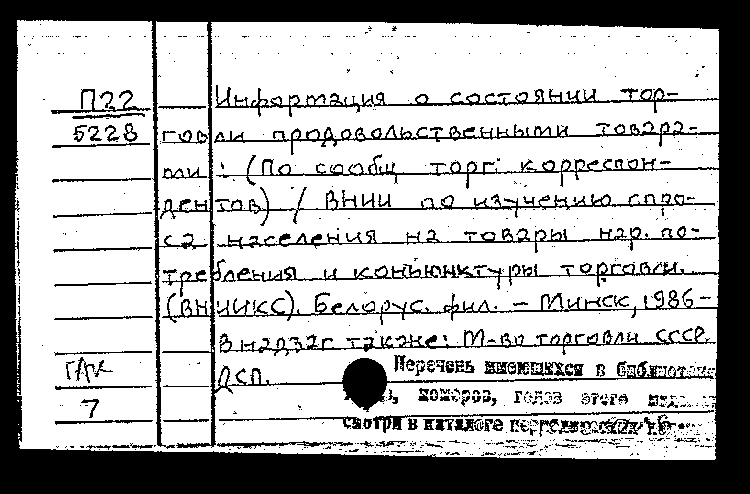 П22
5228
Информация о состоянии тор-
говли продовольственными товара-
ми : (По сообщ торг. корреспон-
дентов) / ВНИИ по изучению спро-
са населения на товары нар. по-
требления и конъюнктуры торговли.
(ВНИИКС). Белорус. фил. – Минск, 1986-
В надзаг также: М-во торговли СССР.
ДСП.
7
Перечень имеющихся в библиотеке
номеров, годов этого
смотри в каталоге